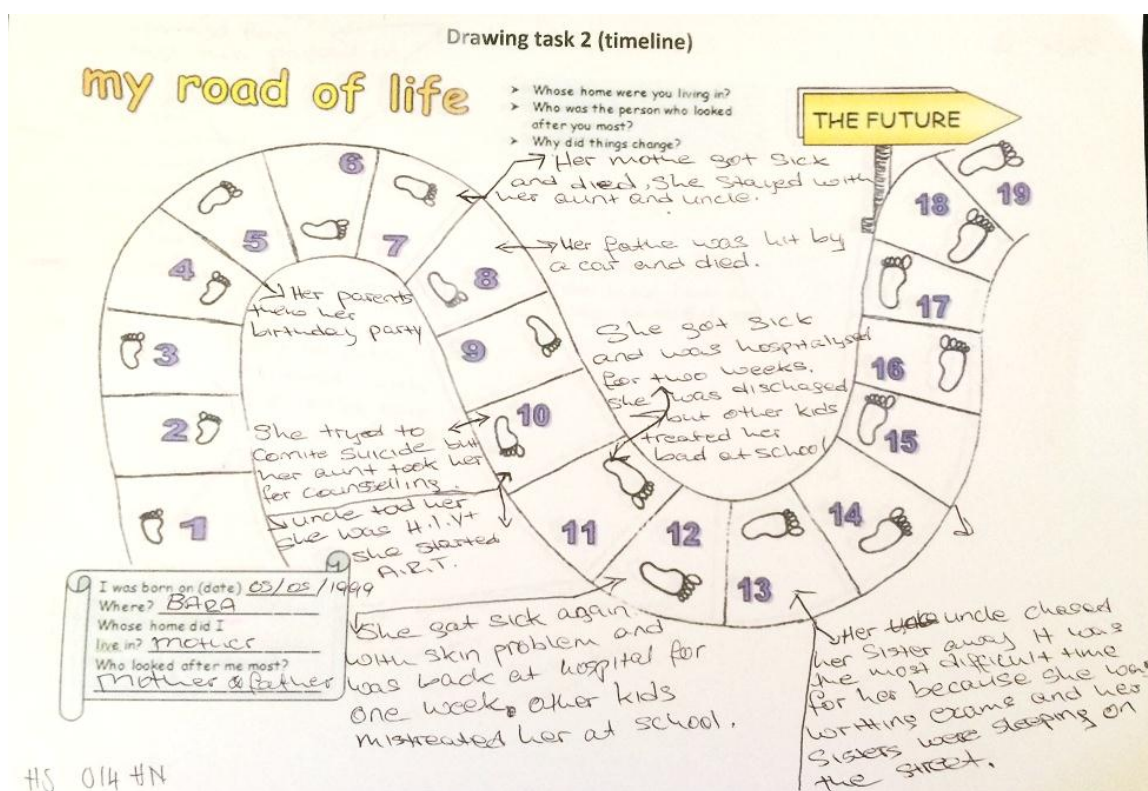 Drawing task 2 (timeline)
my road of life
➢ Whose home were you living in?
➢ Who was the person who looked
after you most?
➢ Why did things change?
THE FUTURE
1
2
3
4
5
6
7
8
9
10
11
12
13
14
15
16
17
18
19
Her mothe got sick
and died, she stayed with
her aunt and uncle.
Her fathe was hit by
a car and died.
Her parents
threw her
birthday party
She got sick
and was hospitalysed
for two weeks.
she was dischaged
but other kids
treated her
bad at school
She tryed to
Comite Suicide but
her aunt took her
for counselling.
uncle tod her
she was H.I.V+
she started
A.R.T.
I was born on (date) 05/05/1999
Where? BARA
Whose home did I
live in? mother
Who looked after me most?
Mother & father
She got sick again
with skin problem and
was back at hospital for
one week, other kids
mistreated her at school.
Her uncle chased
her Sister away It was
the most difficult time
for her because she was
writting exams and her
Sisters were sleeping on
the street.
HS 014 HN